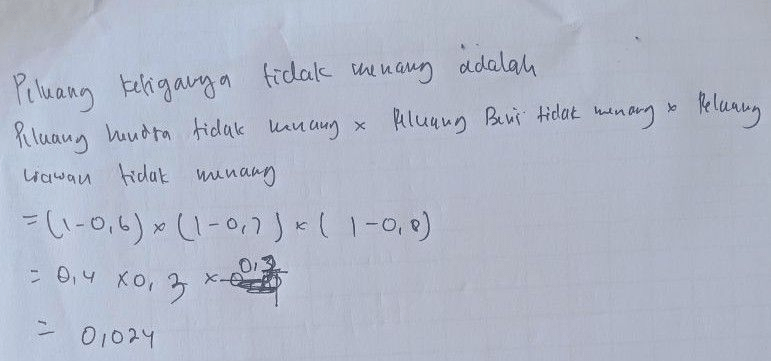 Peluang ketiganya tidak menang adalah
Peluang hendra tidak menang x Peluang Beni tidak menang x Peluang
wawan tidak menang
=(1-0,6) x (1-0,7) x ( 1-0,8)
= 0,4 x 0, 3 x
= 0,024